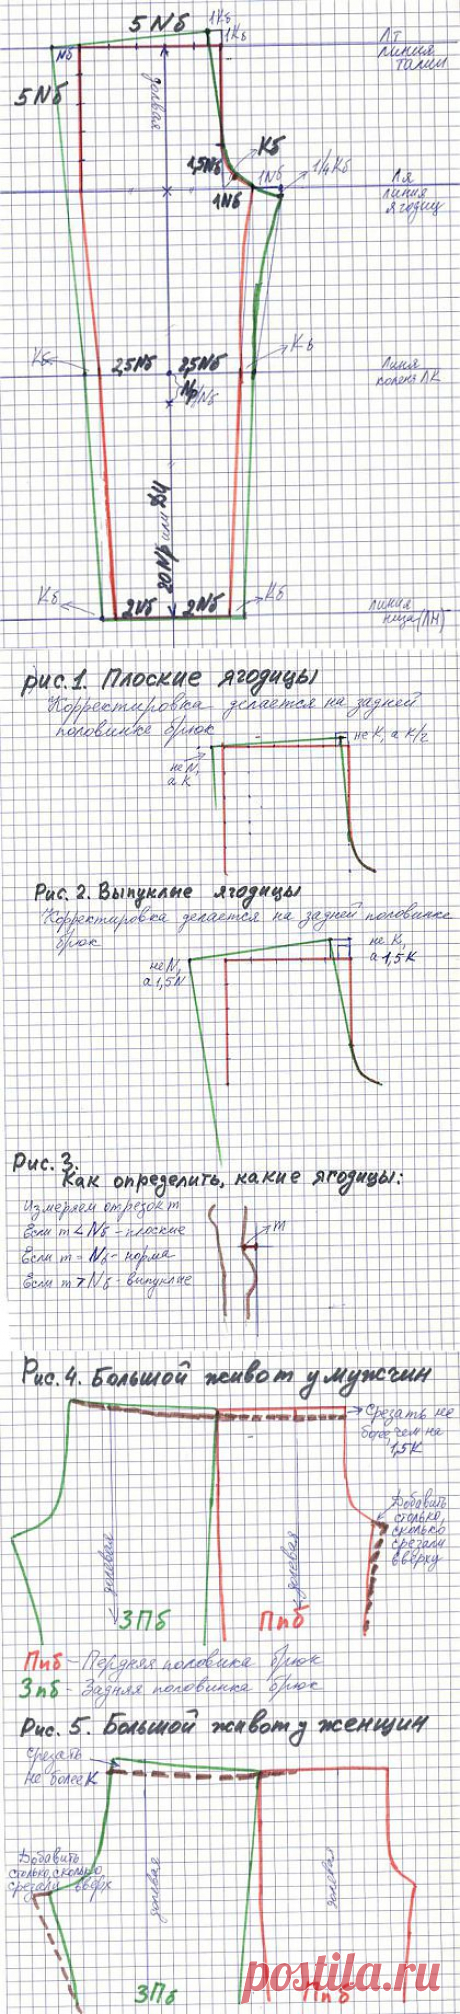 5Nб
1Кб
1Кб
Лт
линия
талии
Nб
5Nб
долевая
Кб
1,5Nб
1Nб
1Nб
1/4Кб
Ля
линия
ягодиц
Кб
2,5Nб
2,5Nб
Кб
Линия
колена ЛК
20Nр или ДИ
Кб
2Nб
2Nб
Кб
линия
низа (ЛН)
рис.1. Плоские ягодицы
Корректировка делается на задней
половинке брюк
не К, а К/2
не N,
а К
Рис. 2. Выпуклые ягодицы
Корректировка делается на задней половинке
брюк
не К,
а 1,5К
не N,
а 1,5N
Рис. 3.
Как определить, какие ягодицы:
Измеряем отрезок m
Если m < Nб - плоские
Если m = Nб - норма
Если m > Nб - выпуклые
m
Рис. 4. Большой живот у мужчин
Срезать не
более, чем на
1,5К
Добавить
столько,
сколько
срезали
вверху
долевая
долевая
ЗПб
Ппб
Ппб - Пердняя половинка брюк
Зпб - Задняя половинка брюк
Рис. 5. Большой живот у женщин
Срезать
не более К
Добавить
столько, сколько
срезали вверх
долевая
долевая
ЗПб
Ппб
postila.ru